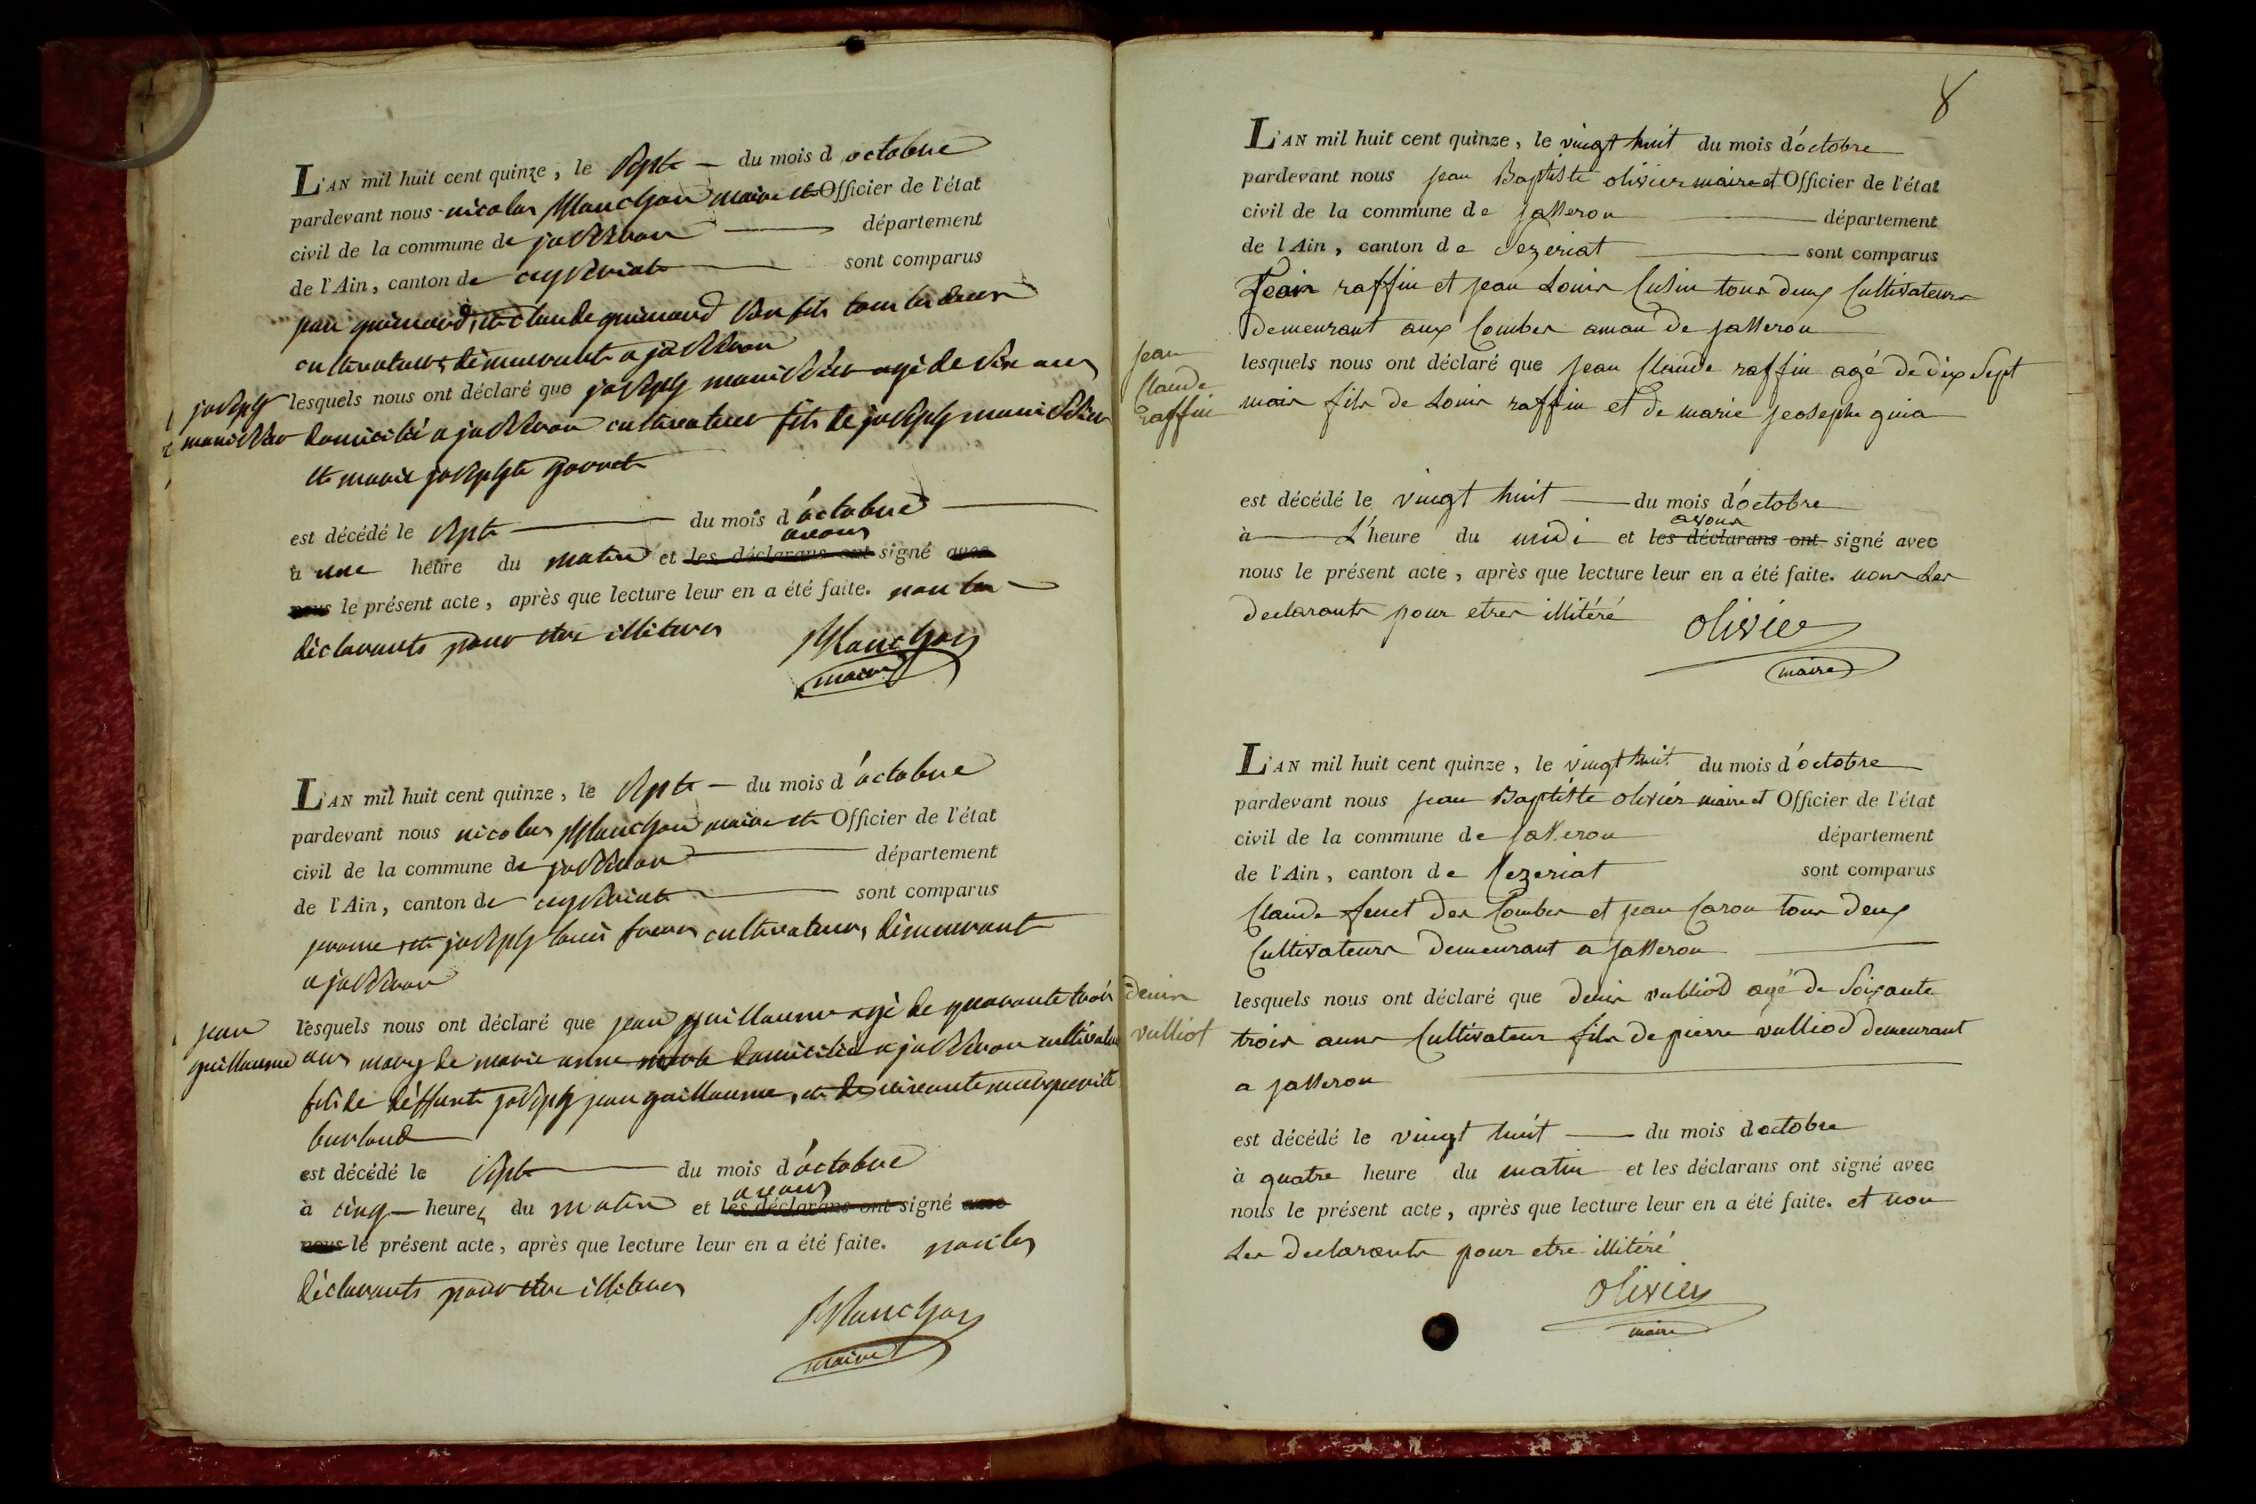 L'AN mil huit cent quinze, le Sept du mois d octobre
pardevant nous nicolas Manchon maire et Officier de l'état
civil de la commune de jasseron département
de l'Ain, canton de ceyseriat sont comparus
jean guinard, et claude guinard Son fils tous les deux
cultivateurs demeurants a jasseron
lesquels nous ont déclaré que joseph agé de Six ans
domicilié a jasseron cultivateur fils de joseph
et marie josephte
joseph
est décédé le Sept du mois d'octobre
avons
à une heure du matin et les déclarans ont signé avec
nous le présent acte, après que lecture leur en a été faite. non les
déclarants pour etre illiteres
Manchon
maire
L'AN mil huit cent quinze, le Sept du mois d'octobre
pardevant nous nicolas Manchon maire et Officier de l'état
civil de la commune de jasseron département
de l'Ain, canton de ceyseriat sont comparus
et joseph freres cultivateurs, demeurant
a jasseron
jean
guillaume
lesquels nous ont déclaré que jean guillaume agé de quarante trois
ans mary de marie anne domicilié a jasseron cultivateur
fils de deffunt joseph jean guillaume, et de vivante marguerite
burtoud
est décédé le Sept du mois d'octobre
avons
à cinq heures du matin et les déclarans ont signé avec
nous le présent acte, après que lecture leur en a été faite. non les
déclarants pour etre illiteres
Manchon
maire
8
L'AN mil huit cent quinze, le vingt huit du mois d'octobre
pardevant nous jean Baptiste olivier maire et Officier de l'état
civil de la commune de jasseron département
de l'Ain, canton de Cezeriat sont comparus
Jean raffin et jean Louis Cusin tous deux Cultivateurs
demeurant aux Combes amont de jasseron
jean
Claude
raffin
lesquels nous ont déclaré que jean Claude raffin agé de dix Sept
mois fils de Louis raffin et de marie jeosephe guia
est décédé le vingt huit du mois d'octobre
avons
à L'heure du midi et les déclarans ont signé avec
nous le présent acte, après que lecture leur en a été faite. non Les
declarants pour etres illitéré
olivier
maire
L'AN mil huit cent quinze, le vingt huit du mois d'octobre
pardevant nous jean Baptiste olivier maire et Officier de l'état
civil de la commune de jasseron département
de l'Ain, canton de Cezeriat sont comparus
Claude des Combes et jean Caron tous deux
Cultivateurs demeurant a jasseron
denis
vulliot
lesquels nous ont déclaré que denis vulliod agé de Soixante
trois anns Cultivateur fils de pierre vulliod demeurant
a jasseron
est décédé le vingt huit du mois d octobre
à quatre heure du matin et les déclarans ont signé avec
nous le présent acte, après que lecture leur en a été faite. et non
Les declarants pour etre illitéré
olivier
maire